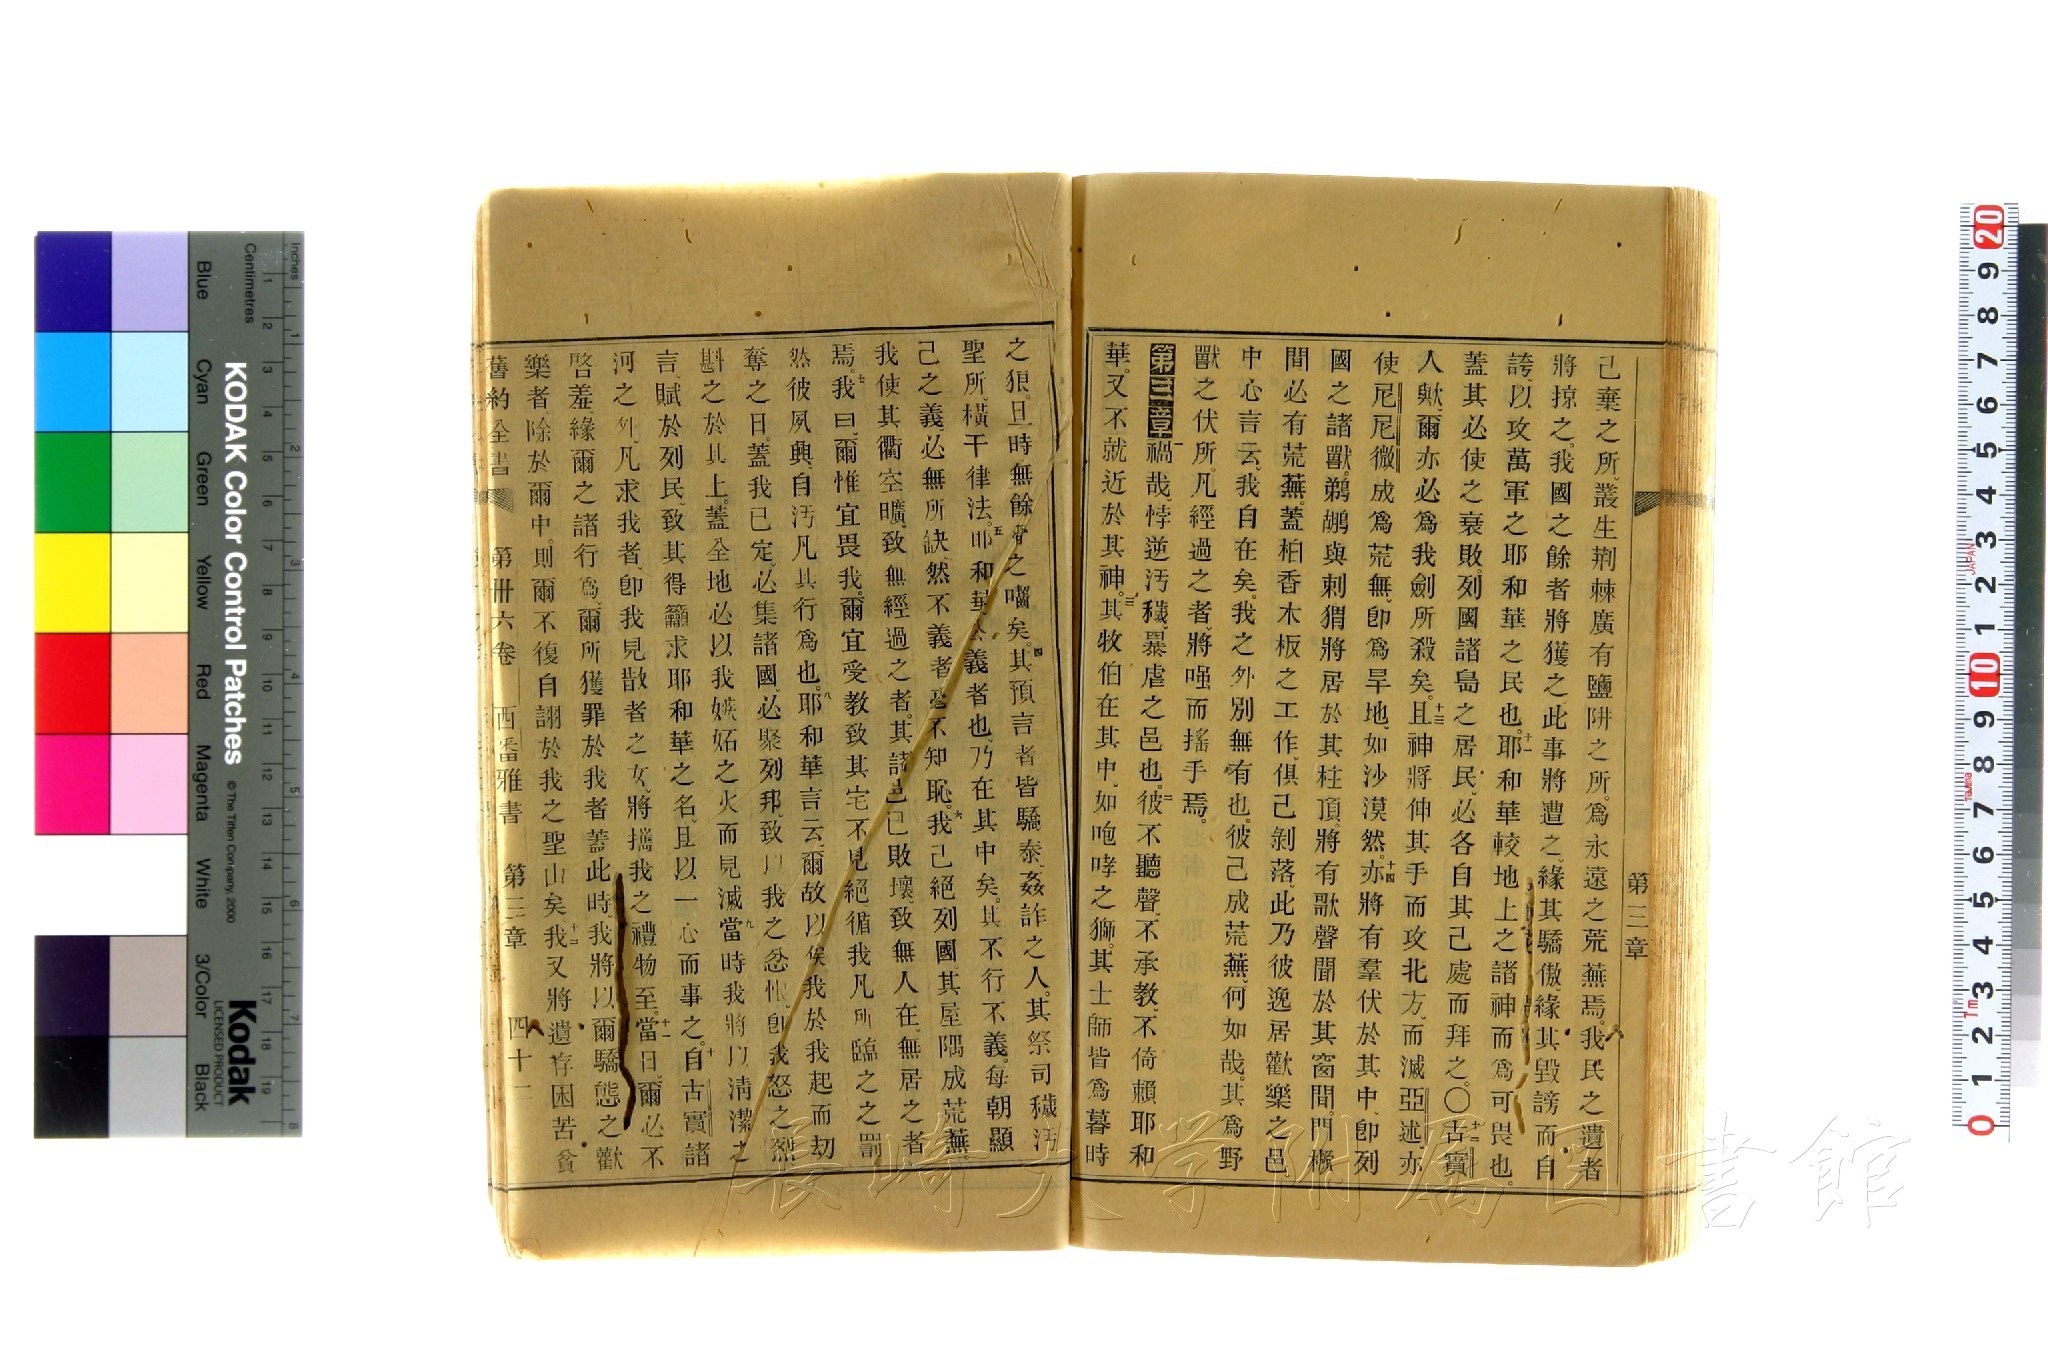 己棄之所、叢生荆棘、廣有鹽阱之所、爲永遠之荒蕪焉。我民之遺者
將掠之。我國之餘者將獲之。此事將遭之、緣其驕傲、緣其毀謗而自
誇、以攻萬軍之耶和華之民也。十一耶和華較地上之諸神而爲可畏也。
蓋其必使之衰敗。列國諸島之居民、必各自其己處而拜之。〇十二古實
人歟、爾亦必爲我劍所殺矣。十三且神將伸其手而攻北方、而滅亞述、亦
使尼尼微成爲荒無、卽爲旱地、如沙漠然。十四亦將有羣伏於其中、卽列
國之諸獸。鵜鶘與刺猬將居於其柱頂、將有歌聲聞於其窗間、門檻
間必有荒蕪。蓋柏香木板之工作、俱己剝落。此乃彼逸居歡樂之邑
中心言云、我自在矣。我之外別無有也。彼己成荒蕪、何如哉。其爲野
獸之伏所。凡經過之者、將嗤而搖手焉。
第三章 一禍哉、悖逆汚穢、暴虐之邑也。二彼不聽聲、不承教、不倚賴耶和
華。又不就近於其神。三其牧伯在其中、如咆哮之獅。其士師皆爲暮時
第三章
之狼。旦時無餘 之囓矣。四其預言者皆驕泰、姦詐之人。其祭司穢汚
聖所、橫干律法。五耶和華公義者也、乃在其中矣。其不行不義。每朝顯
己之義、必無所缺。然不義者毫不知恥。六我己絕列國。其屋隅成荒蕪。
我使其衢空曠、致無經過之者。其諸邑己敗壞、致無人在、無居之者
焉。七我曰、爾惟宜畏我。爾宜受教、致其宅不見絕、循我凡所臨之之罰
然彼夙興、自汚凡其行爲也。八耶和華言云、爾故以俟我、於我起而刧
奪之日。蓋我已定、必集諸國、必聚列邦、致以我之忿恨、卽我怒之烈
斟之於其上。蓋全地必以我嫉妬之火而見滅。九當時我將以淸潔之
言、賦於列民、致其得籲求耶和華之名、且以一心而事之。十自古實諸
河之外、凡求我者、卽我見散者之女、將攜我之禮物至。十一當日、爾必不
啓羞、緣爾之諸行爲、爾所獲罪於我者。蓋此時、我將以爾驕態之歡
樂者、除於爾中。則爾不復自詡於我之聖山矣。十二我又將遺存困苦貧
舊約全書 第卅六卷 西番雅書 第三章 四十二
KODAK Color Control Patches
© The Tiffen Company, 2000
Kodak
LICENSED PRODUCT
Inches
Centimetres
Blue Cyan Green Yellow Red Magenta White 3/Color Black
JAPAN
長崎大学附属図書館